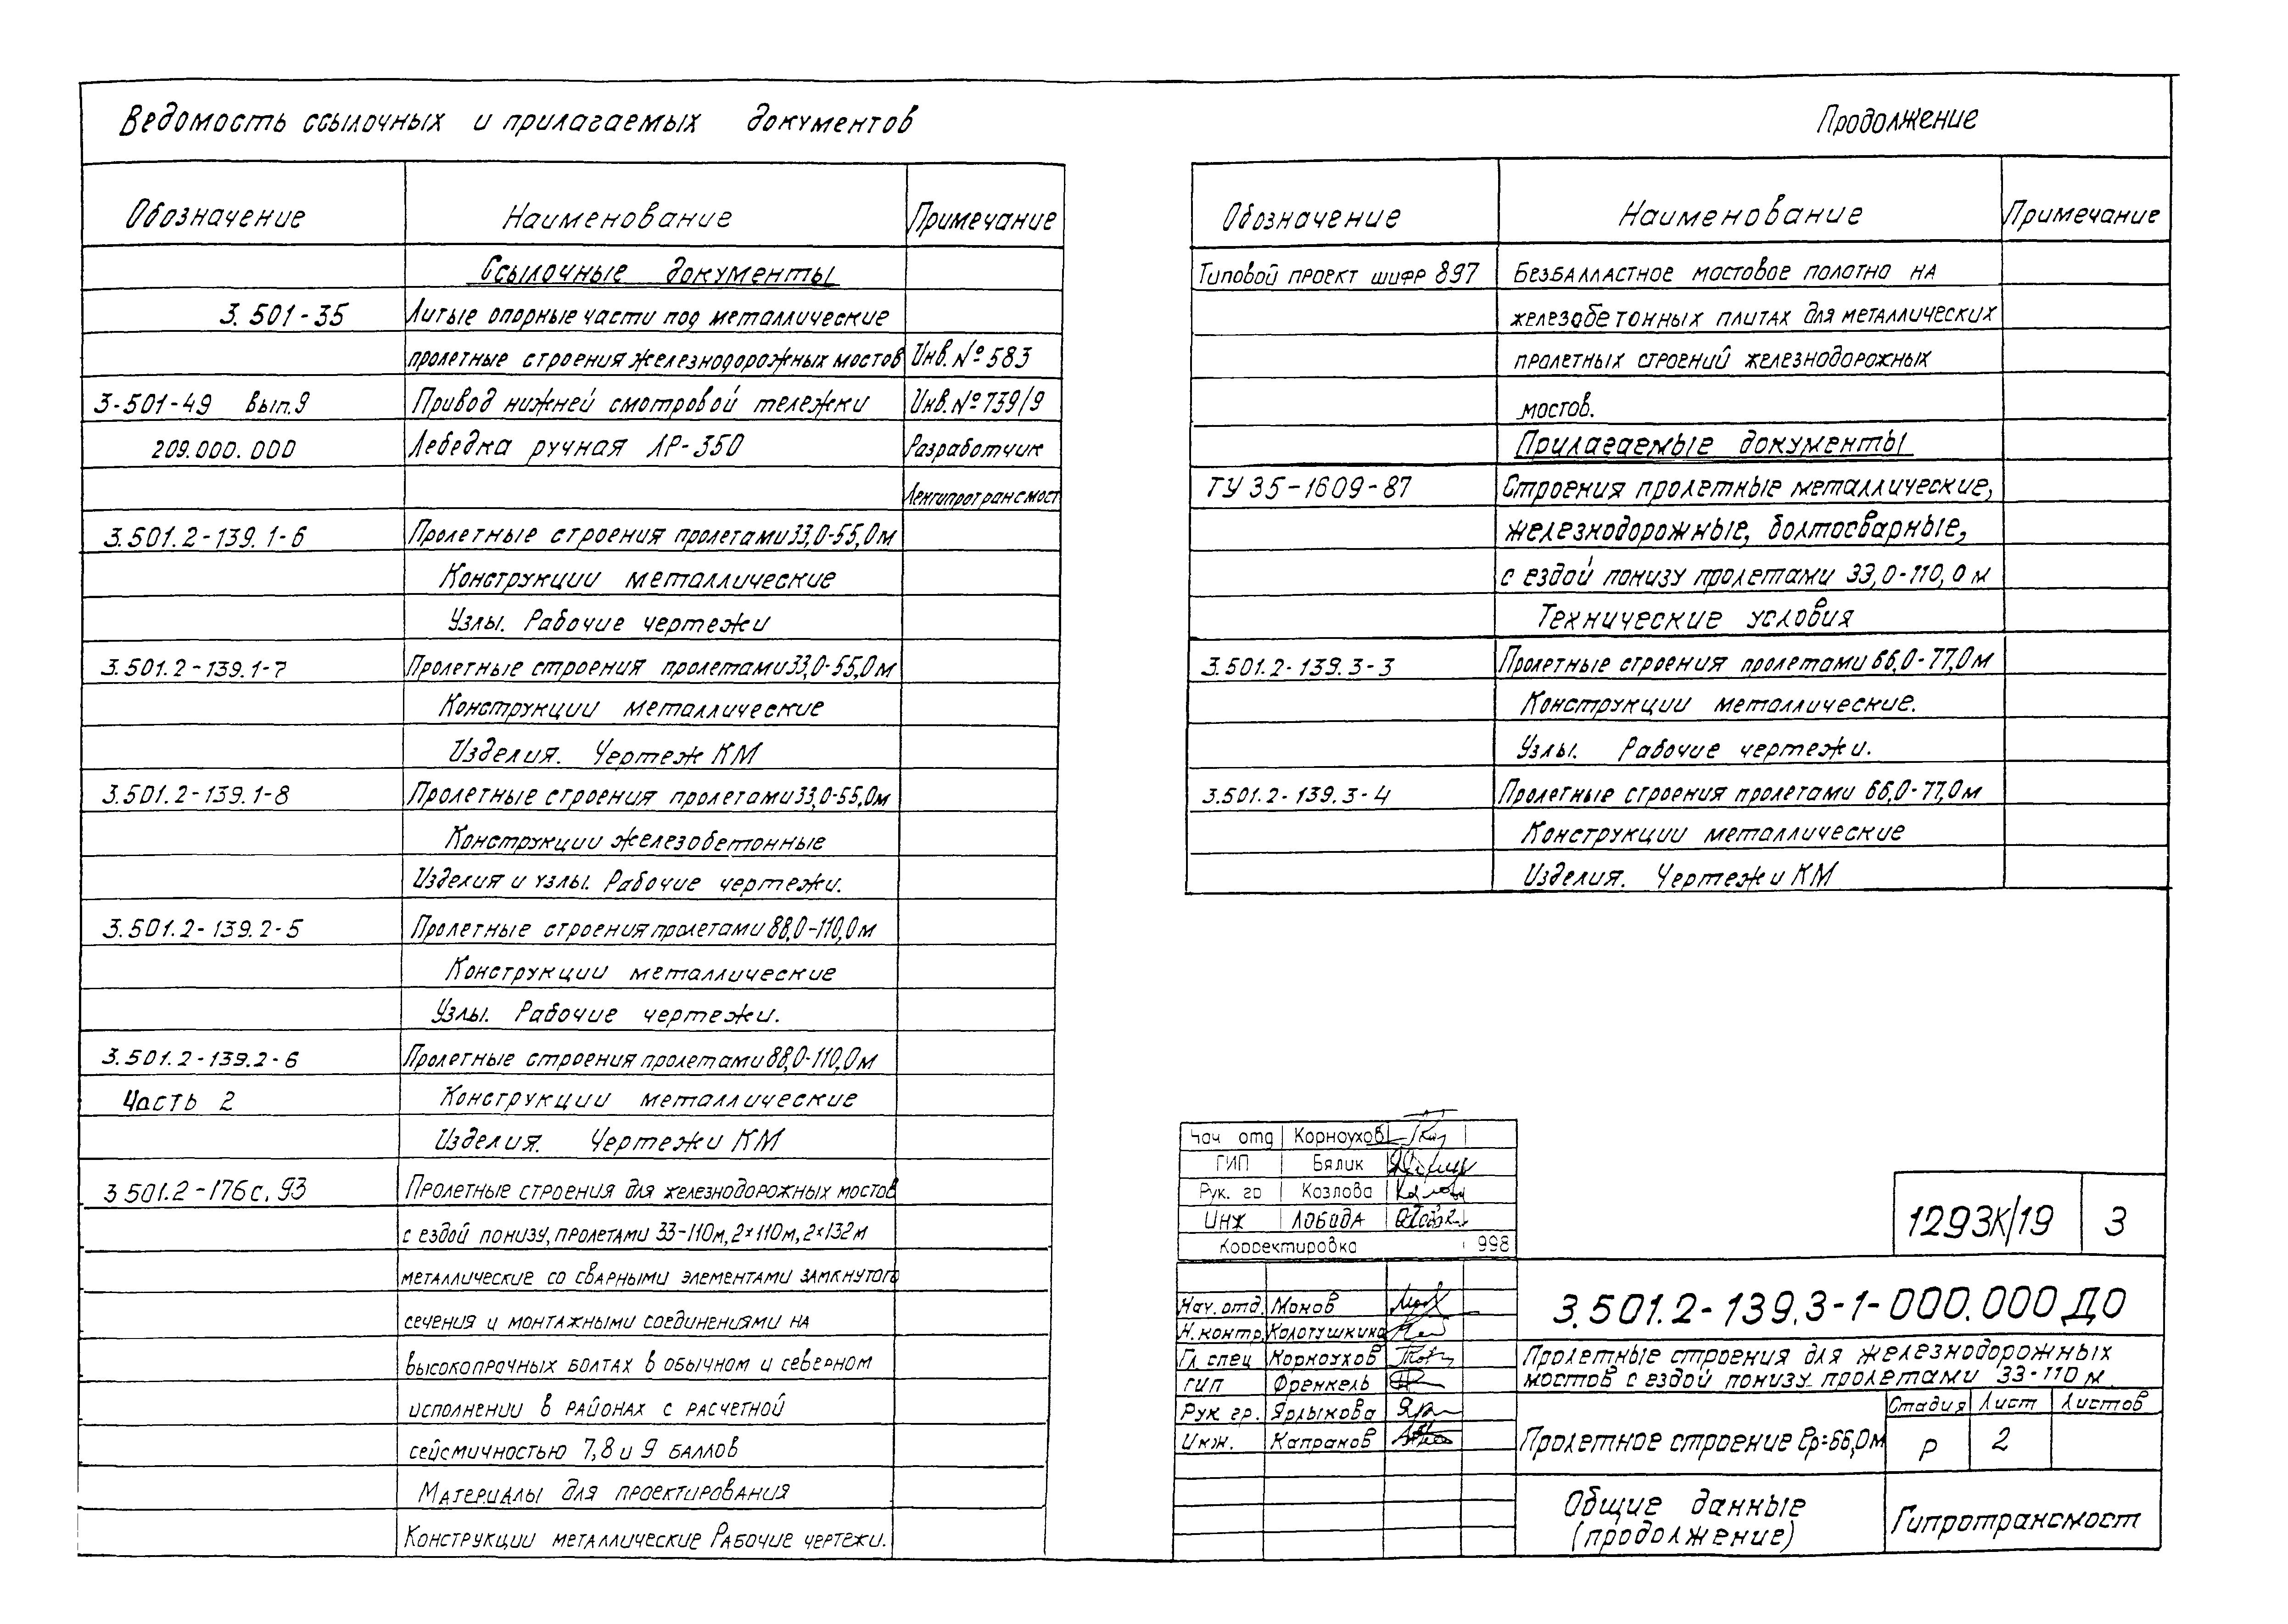 Ведомость ссылочных и прилагаемых документов
Обозначение Наименование Примечание
Ссылочные документы
3.501-35 Литые опорные части под металлические
пролетные строения железнодорожных мостов Инв.№583
3-501-49 вып.9 Привод нижней смотровой тележки Инв.№739/9
209.000.000 Лебедка ручная ЛР-350 Разработчик
Ленгипротрансмост
3.501.2-139.1-6 Пролетные строения пролетами 33,0-55,0м
Конструкции металлические
Узлы. Рабочие чертежи
3.501.2-139.1-7 Пролетные строения пролетами 33,0-55,0м
Конструкции металлические
Изделия. Чертеж КМ
3.501.2-139.1-8 Пролетные строения пролетами 33,0-55,0м
Конструкции железобетонные
Изделия и узлы. Рабочие чертежи.
3.501.2-139.2-5 Пролетные строения пролетами 88,0-110,0м
Конструкции металлические
Узлы. Рабочие чертежи.
3.501.2-139.2-6 Пролетные строения пролетами 88,0-110,0м
Часть 2 Конструкции металлические
Изделия. Чертежи КМ
3 501.2-176с.93 Пролетные строения для железнодорожных мостов
с ездой понизу, пролетами 33-110м, 2×110м, 2×132м
металлические со сварными элементами замкнутого
сечения и монтажными соединениями на
высокопрочных болтах в обычном и северном
исполнении в районах с расчетной
сейсмичностью 7,8 и 9 баллов
Материалы для проектирования
Конструкции металлические Рабочие чертежи.
Продолжение
Обозначение Наименование Примечание
Типовой проект шифр 897 Безбалластное мостовое полотно на
железобетонных плитах для металлических
пролетных строений железнодорожных
мостов.
Прилагаемые документы
ТУ 35-1609-87 Строения пролетные металлические,
железнодорожные, болтосварные,
с ездой понизу пролетами 33,0-110,0м
Технические условия
3.501.2-139.3-3 Пролетные строения пролетами 66,0-77,0м
Конструкции металлические.
Узлы. Рабочие чертежи.
3.501.2-139.3-4 Пролетные строения пролетами 66,0-77,0м
Конструкции металлические
Изделия. Чертежи КМ
Нач отд Корноухов
ГИП Бялик
Рук. гр Козлова
Инж Лобода
Корректировка 998
1293К/19 3
Нач.отд. Монов
Н.контр. Колотушкина
Гл спец Корноухов
ГИП Френкель
Рук гр. Ярлыкова
Инж. Капранов
3.501.2-139.3-1-000.000 ДО
Пролетные строения для железнодорожных
мостов с ездой понизу пролетами 33-110 м.
Пролетное строение ℓр=66,0м
Стадия Лист Листов
Р 2
Общие данные
(продолжение)
Гипротрансмост